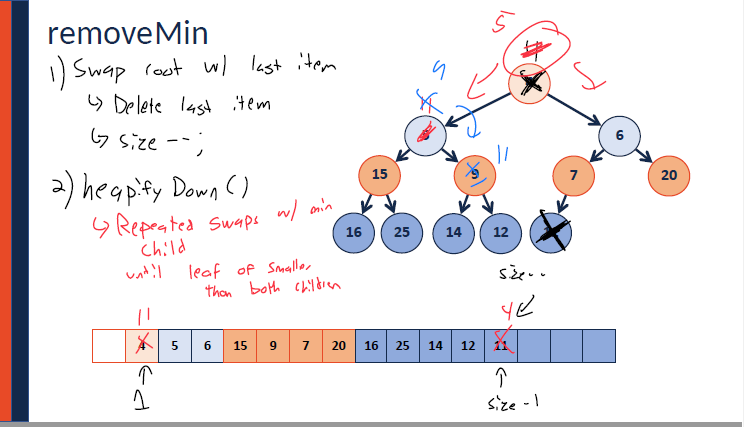 removeMin
1) Swap root w/ last item
↳ Delete last item
↳ size --;
2) heapifyDown()
↳ Repeated swaps w/ min
child
until leaf or smaller
than both children
5
11
9
11
6
15
9
11
7
20
16
25
14
12
size--
11
4
4
5
6
15
9
7
20
16
25
14
12
11
1
size -1